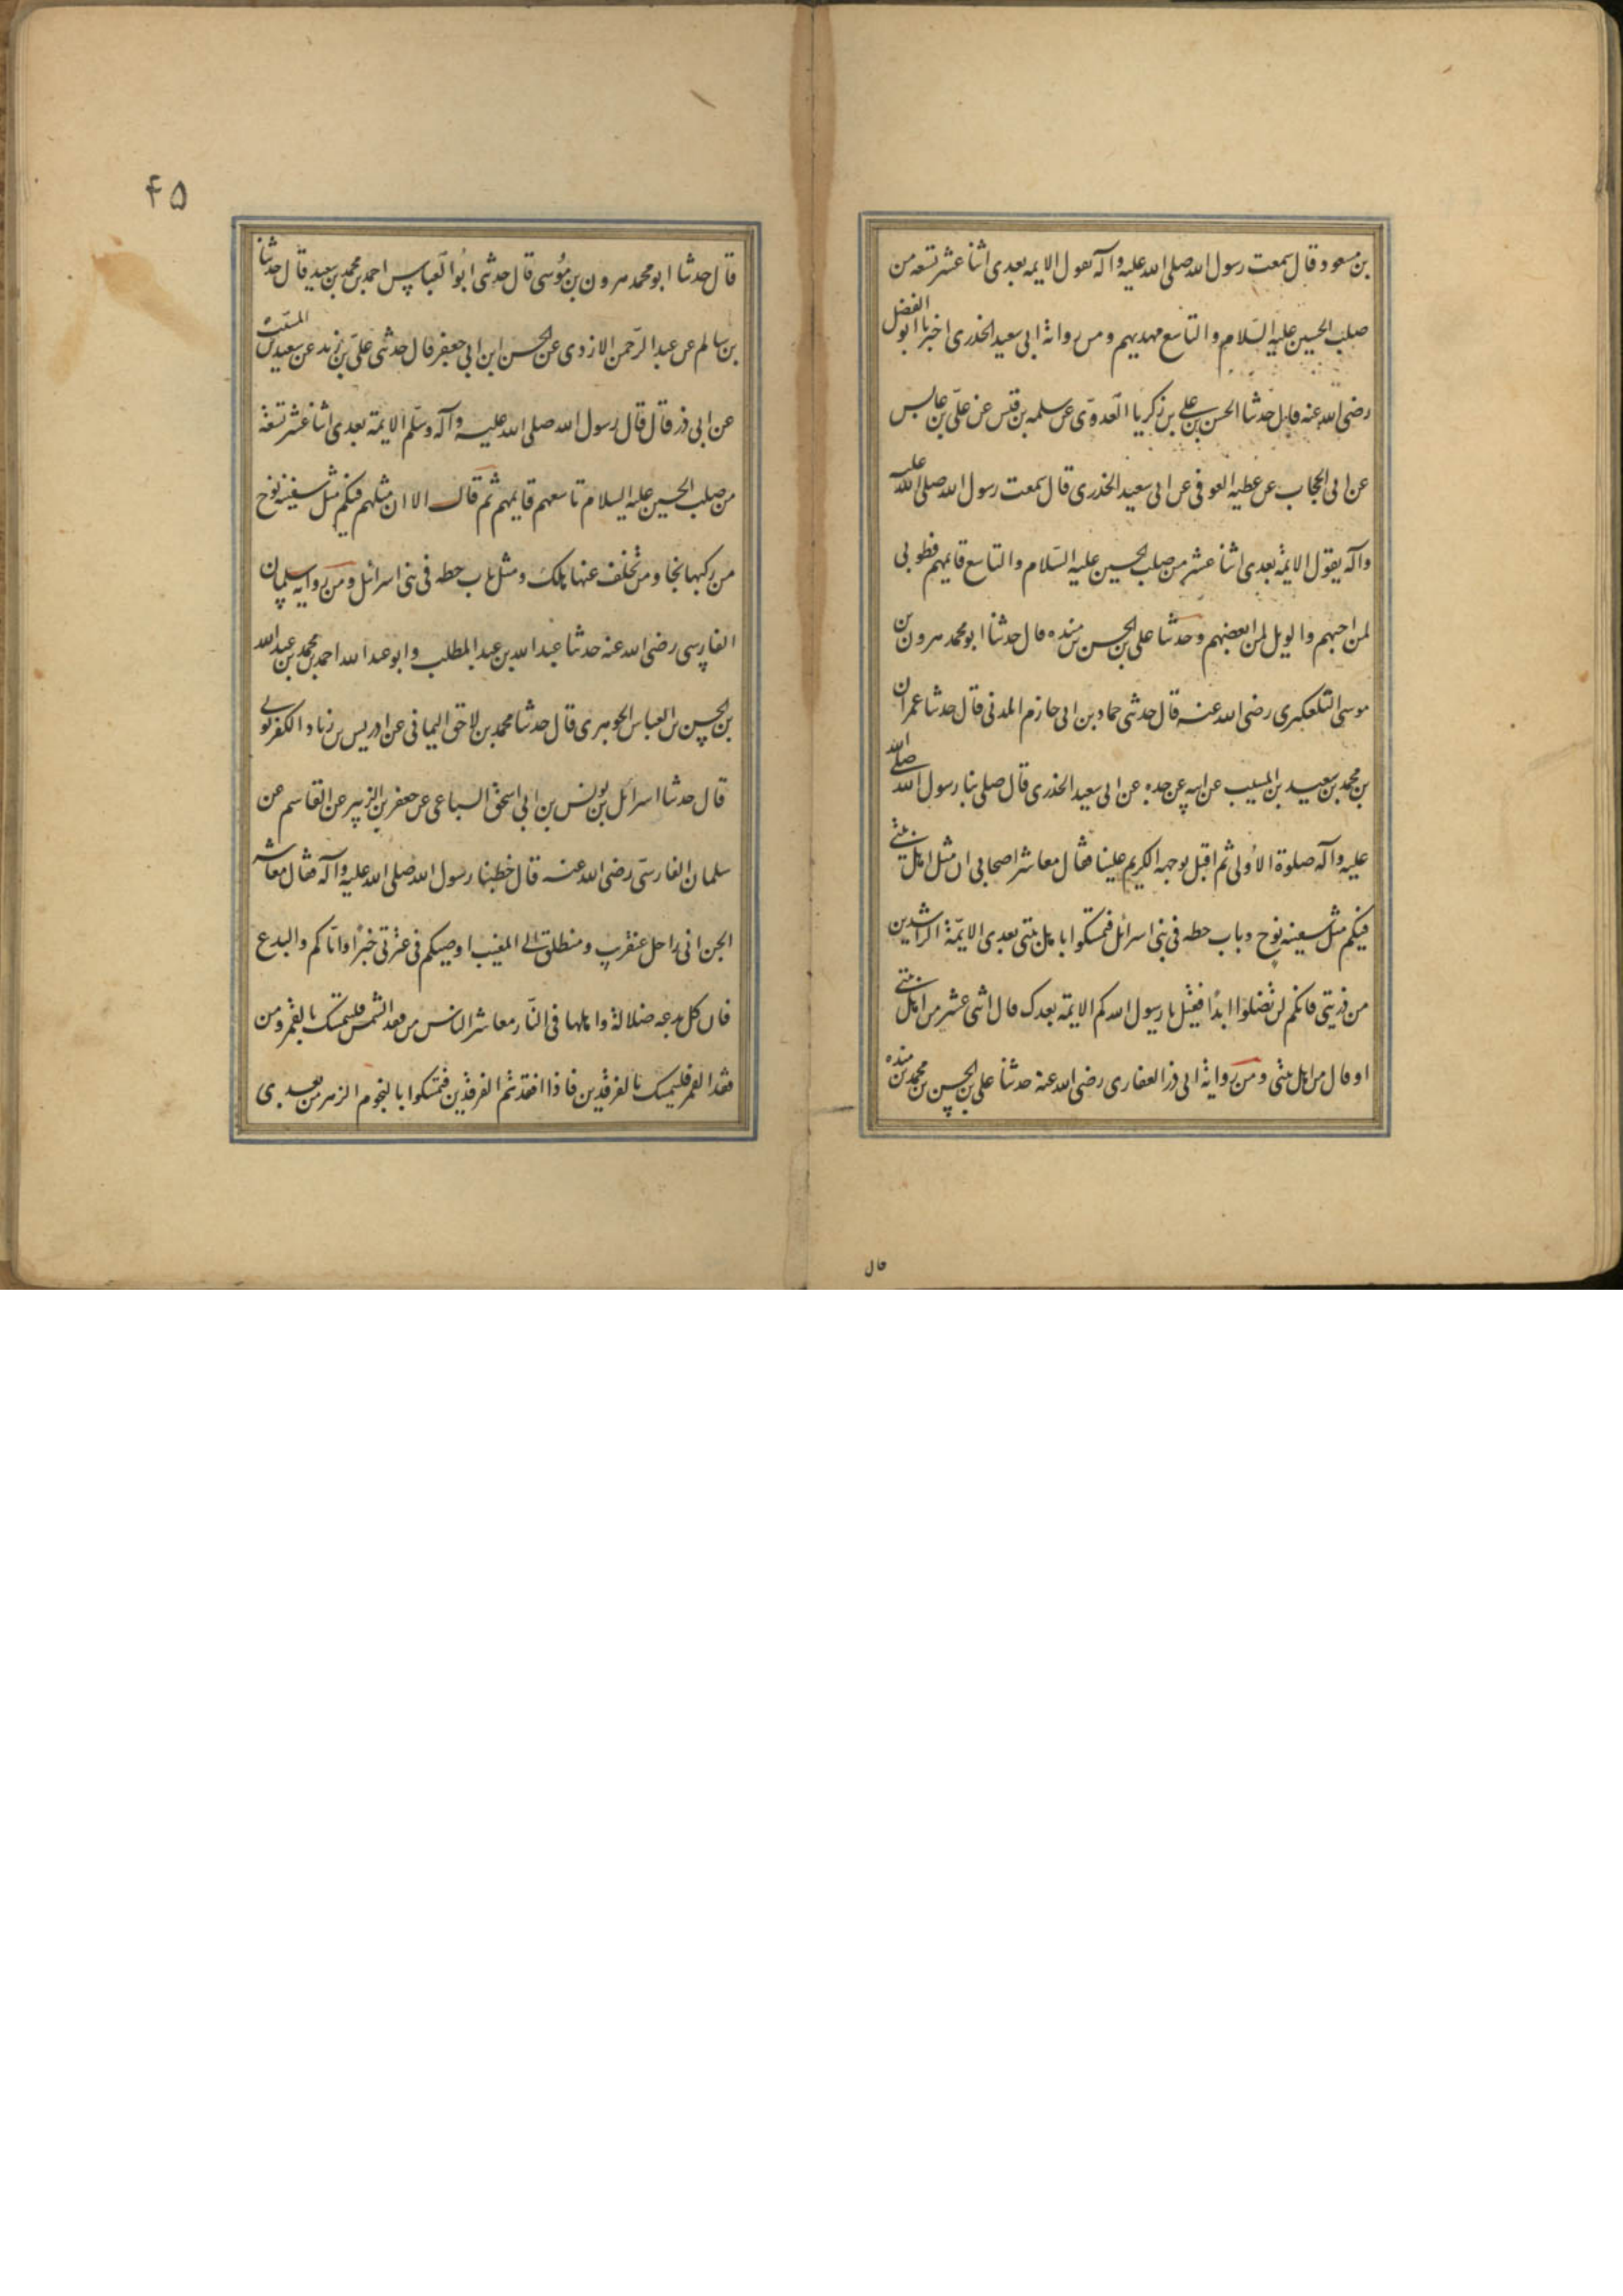 بن مسعود قال سمعت رسول الله صلى الله عليه وآله يقول الايمه بعدى اثنا عشر تسعه من
صلب الحسين عليه السّلام والتاسع مهديهم ومن رواية ابى سعيد الخدرى اخبرنا ابو الفضل
رضى الله عنه قال حدثنا الحسن بن على بن زكريا العدوّى عن سلمه بن قيس عن علىّ بن عابس
عن ابى الحجاب عن عطيه العوفى عن ابى سعيد الخدرى قال سمعت رسول الله صلى الله عليه
وآله يقول الايمة بعدى اثنا عشر من صلب الحسين عليه السّلام والتاسع قايمهم فطوبى
لمن احبهم والويل لمن ابغضهم وحدثنا على بن الحسن بن منده قال حدثنا ابو محمد هرون بن
موسى التلعكبرى رضى الله عنه قال حدثنى حماد بن ابى حازم المدنى قال حدثنا عمران
بن محمد بن سعيد بن المسيب عن ابيه عن جده عن ابى سعيد الخدرى قال صلى بنا رسول الله صلى الله
عليه وآله صلوة الأولى ثم اقبل بوجهه الكريم علينا فقال معاشر اصحابى ان مثل اهل بيتى
فيكم مثل سفينه نوح وباب حطه فى بنى اسرائل فتمسكوا باهل بيتى بعدى الايمّة الراشدين
من ذريتى فانكم لن تضلوا ابدًا فقيل يا رسول الله كم الايمة بعدك قال اثنى عشر من اهل بيتى
او قال من اهل بيتى ومن رواية ابى ذر الغفارى رضى الله عنه حدثنا على بن الحسن بن محمد بن منده
قال
۴۵
قال حدثنا ابو محمد هرون بن موُسى قال حدثنى ابُو العّباس احمد بن محمد بن سعيد قال حدثنا
بن سالم عن عبد الرّحمن الازدى عن الحسن ابن ابى جعفر قال حدثنى علىّ بن زيد عن سعيد بن المسيّب
عن ابى ذر قال قال رسول الله صلى الله عليه وآله وسلّم الايمة بعدى اثنا عشر تسعة
من صلب الحسين عليه السلام تاسعهم قايمهم ثم قال الا ان مثلهم فيكم مثل سفينه نوح
من ركبها نجا ومن تخلف عنها هلك ومثل باب حطه فى بنى اسرائل ومن رواية سلمان
الفارسى رضى الله عنه حدثنا عبد الله بن عبد المطلب وابو عبد الله احمد بن محمد بن عبد الله
بن الحسن بن العباس الجوهرى قال حدثنا محمد بن لاحق اليمانى عن ادريس بن زياد الكفرتوثى
قال حدثنا اسرائل بن يونس بن ابى اسحق السباعى عن جعفر بن الزبير عن القاسم عن
سلمان الفارسىّ رضى الله عنه قال خطبنا رسول الله صلى الله عليه وآله فقال معاشر
الجن انى راحل عنقريب ومنطلق الى المغيب اوصيكم فى عترتى خيرًا واياكم والبدع
فان كل بدعه ضلالة واهلها فى النّار معاشر الناس من فقد الشمس فليتمسك بالقمر ومن
فقد القمر فليتمسك بالفرقدين فاذا افقدتم الفرقدين فتمسكوا بالنجوم الزهر من بعدى